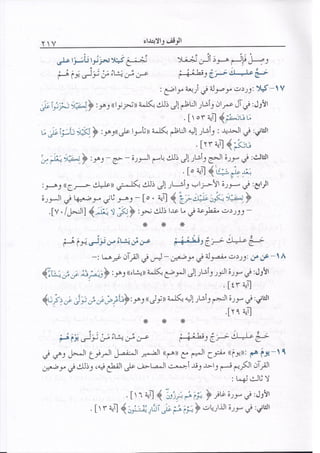 الوقف والابتداء
٢١٧
وصِـلْ فـإلـم هـودَ ألـن نجعـلا نجـمـع كيـلا تحزنوا تأسوا على
حـجٌّ عليـك حـرجٌ وقطعـهـم عـن مـن يشـاءُ مـن تـولـى يـوم هُـم
١٧- كيلا: وردت موصولة في أربعة مواضع:
الأول: في آل عمران وأشار الناظم إلى ذلك بكلمة «تحزنوا» وهو: ﴿لِكَيْلَا تَحْزَنُوا عَلَىٰ
مَا فَاتَكُمْ﴾ [آية ١٥٣].
الثاني: في الحديد: وأشار إليه الناظم بكلمة «تأسوا على» وهو: ﴿لِكَيْلَا تَأْسَوْا عَلَىٰ مَا
فَاتَكُمْ﴾ [آية ٢٣].
الثالث: في سورة الحج وأشار إلى ذلك باسم السورة – حج – وهو: ﴿لِكَيْلَا يَعْلَمَ مِنْ
بَعْدِ عِلْمٍ شَيْئًا﴾ [آية ٥].
الرابع: في سورة الأحزاب وأشـار إلى ذلك بكلمتي «عليك حـرج» وهـو:
﴿لِكَيْلَا يَكُونَ عَلَيْكَ حَرَجٌ﴾ [آية ٥٠] – وهـو ثاني موضعيها في السورة
– ووردت مقطوعة في ما عدا ذلك نحو: ﴿لِكَيْ لَا يَعْلَمَ﴾ [النحل/٧٠].
* * *
حـجٌّ عليـك حـرجٌ وقطعُـهُـم عـن مـن يشـاءُ مـن تـولـى يـوم هُـم
١٨- عن من: وردت مفصولة في موضعين – ليس في القرآن غيرهما –:
الأول: في سورة النور وأشار إلى الموضع بكلمة «يشاء» وهو: ﴿وَيَصْرِفُهُ عَن مَّن يَشَاءُ﴾
[آية ٤٣].
الثاني: في سورة النجم وأشار إليه بكلمة «تولى» وهو: ﴿فَأَعْرِضْ عَن مَّن تَوَلَّىٰ عَن ذِكْرِنَا﴾
[آية ٢٩].
* * *
حـجٌّ عليـك حـرجٌ وقطعـهـم عـن مـن يشـاءُ مـن تـولـى يـوم هُـم
١٩- يوم هم: «يوم» مفتوح الميم مع «هم» الضمير المنفصل المرفوع المحل وهي في
القرآن الكريم قسم واحد وقد أجمعت المصاحف على القطع فيه، وذلك في موضعين
لا ثالث لهما:
الأول: في سورة غافر ﴿يَوْمَ هُم بَارِزُونَ﴾ [آية ١٦].
الثاني: في سورة الذاريات ﴿يَوْمَ هُمْ عَلَى النَّارِ يُفْتَنُونَ﴾ [آية ١٣].